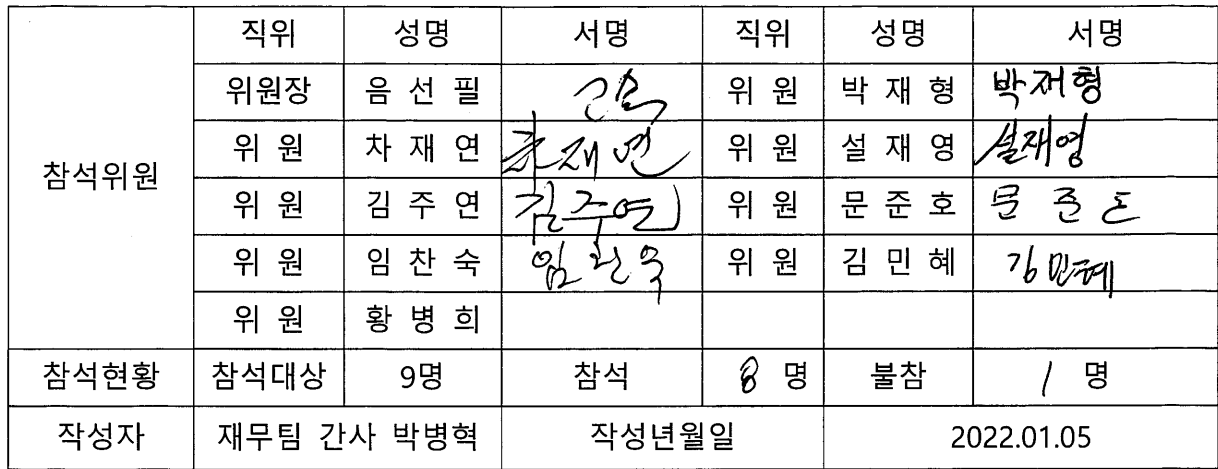 직위 성명 서명 직위 성명 서명
위원장 음 선 필 위 원 박 재 형 박재형
위 원 차 재 연 차재연 위 원 설 재 영 설재영
참석위원
위 원 김 주 연 김주연 위 원 문 준 호 문준호
위 원 임 찬 숙 임찬숙 위 원 김 민 혜 김민혜
위 원 황 병 희
참석현황 참석대상 9명 참석 8 명 불참 1 명
작성자 재무팀 간사 박병혁 작성년월일 2022.01.05